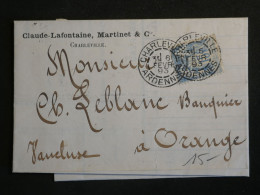 Claude-Lafontaine, Martinet & Cie.
CHARLEVILLE
CHARLEVILLE
FEVR.
93
ARDENNES
FEVR.
93
ARDENNES
Monsieur
Ch. Leblanc Banquier
à Orange
Vaucluse
15-